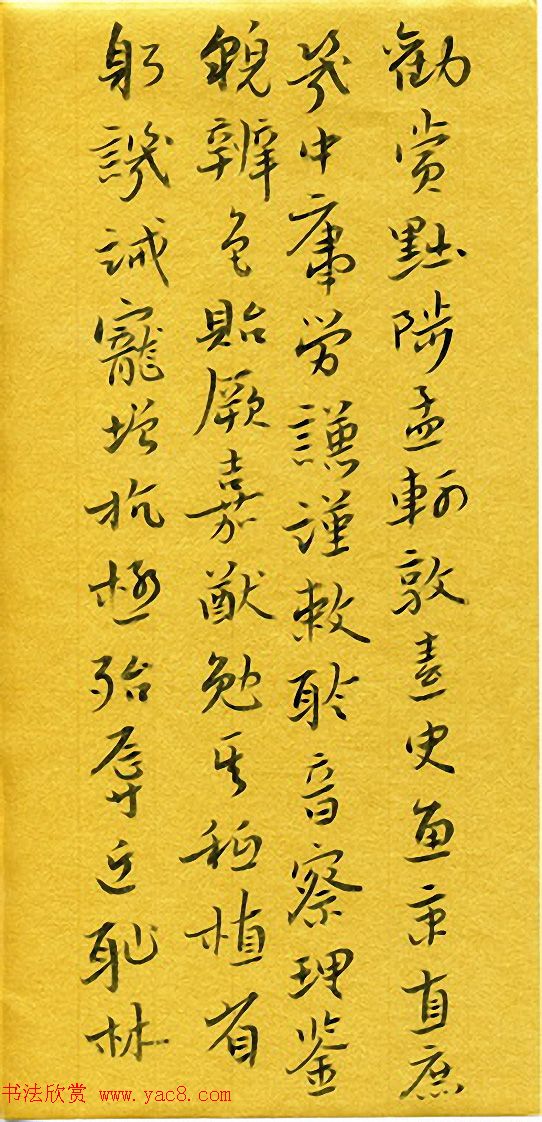 勸賞黜陟孟軻敦素史魚秉直庶
幾中庸勞謙謹敕聆音察理鉴
貌辨色貽厥嘉猷勉其祗植省
躬譏誡寵增抗極殆辱近恥林
书法欣赏 www.yac8.com